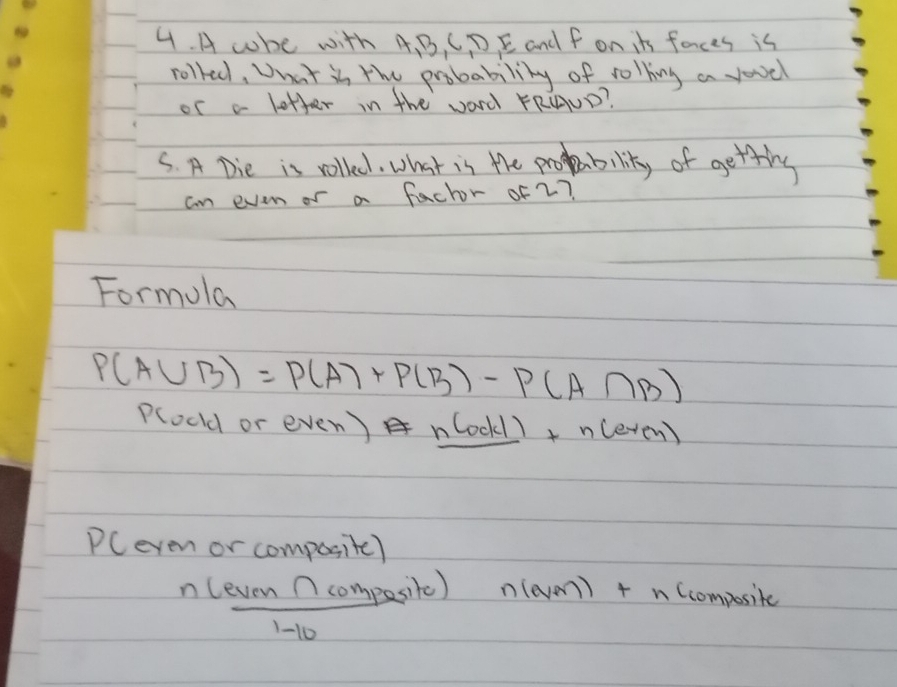 4. A cube with A,B,C,D,E and F on its faces is
rolled. What is the probability of rolling a vowel
or a letter in the word FRAUD?
5. A Die is rolled. What is the probability of getting
an even or a factor of 2?
Formula
P(A∪B) = P(A) + P(B) - P(A ∩ B)
P(odd or even) = n(odd) + n(even)
P(even or composite)
n(even ∩ composite) n(even) + n(composite
1-10